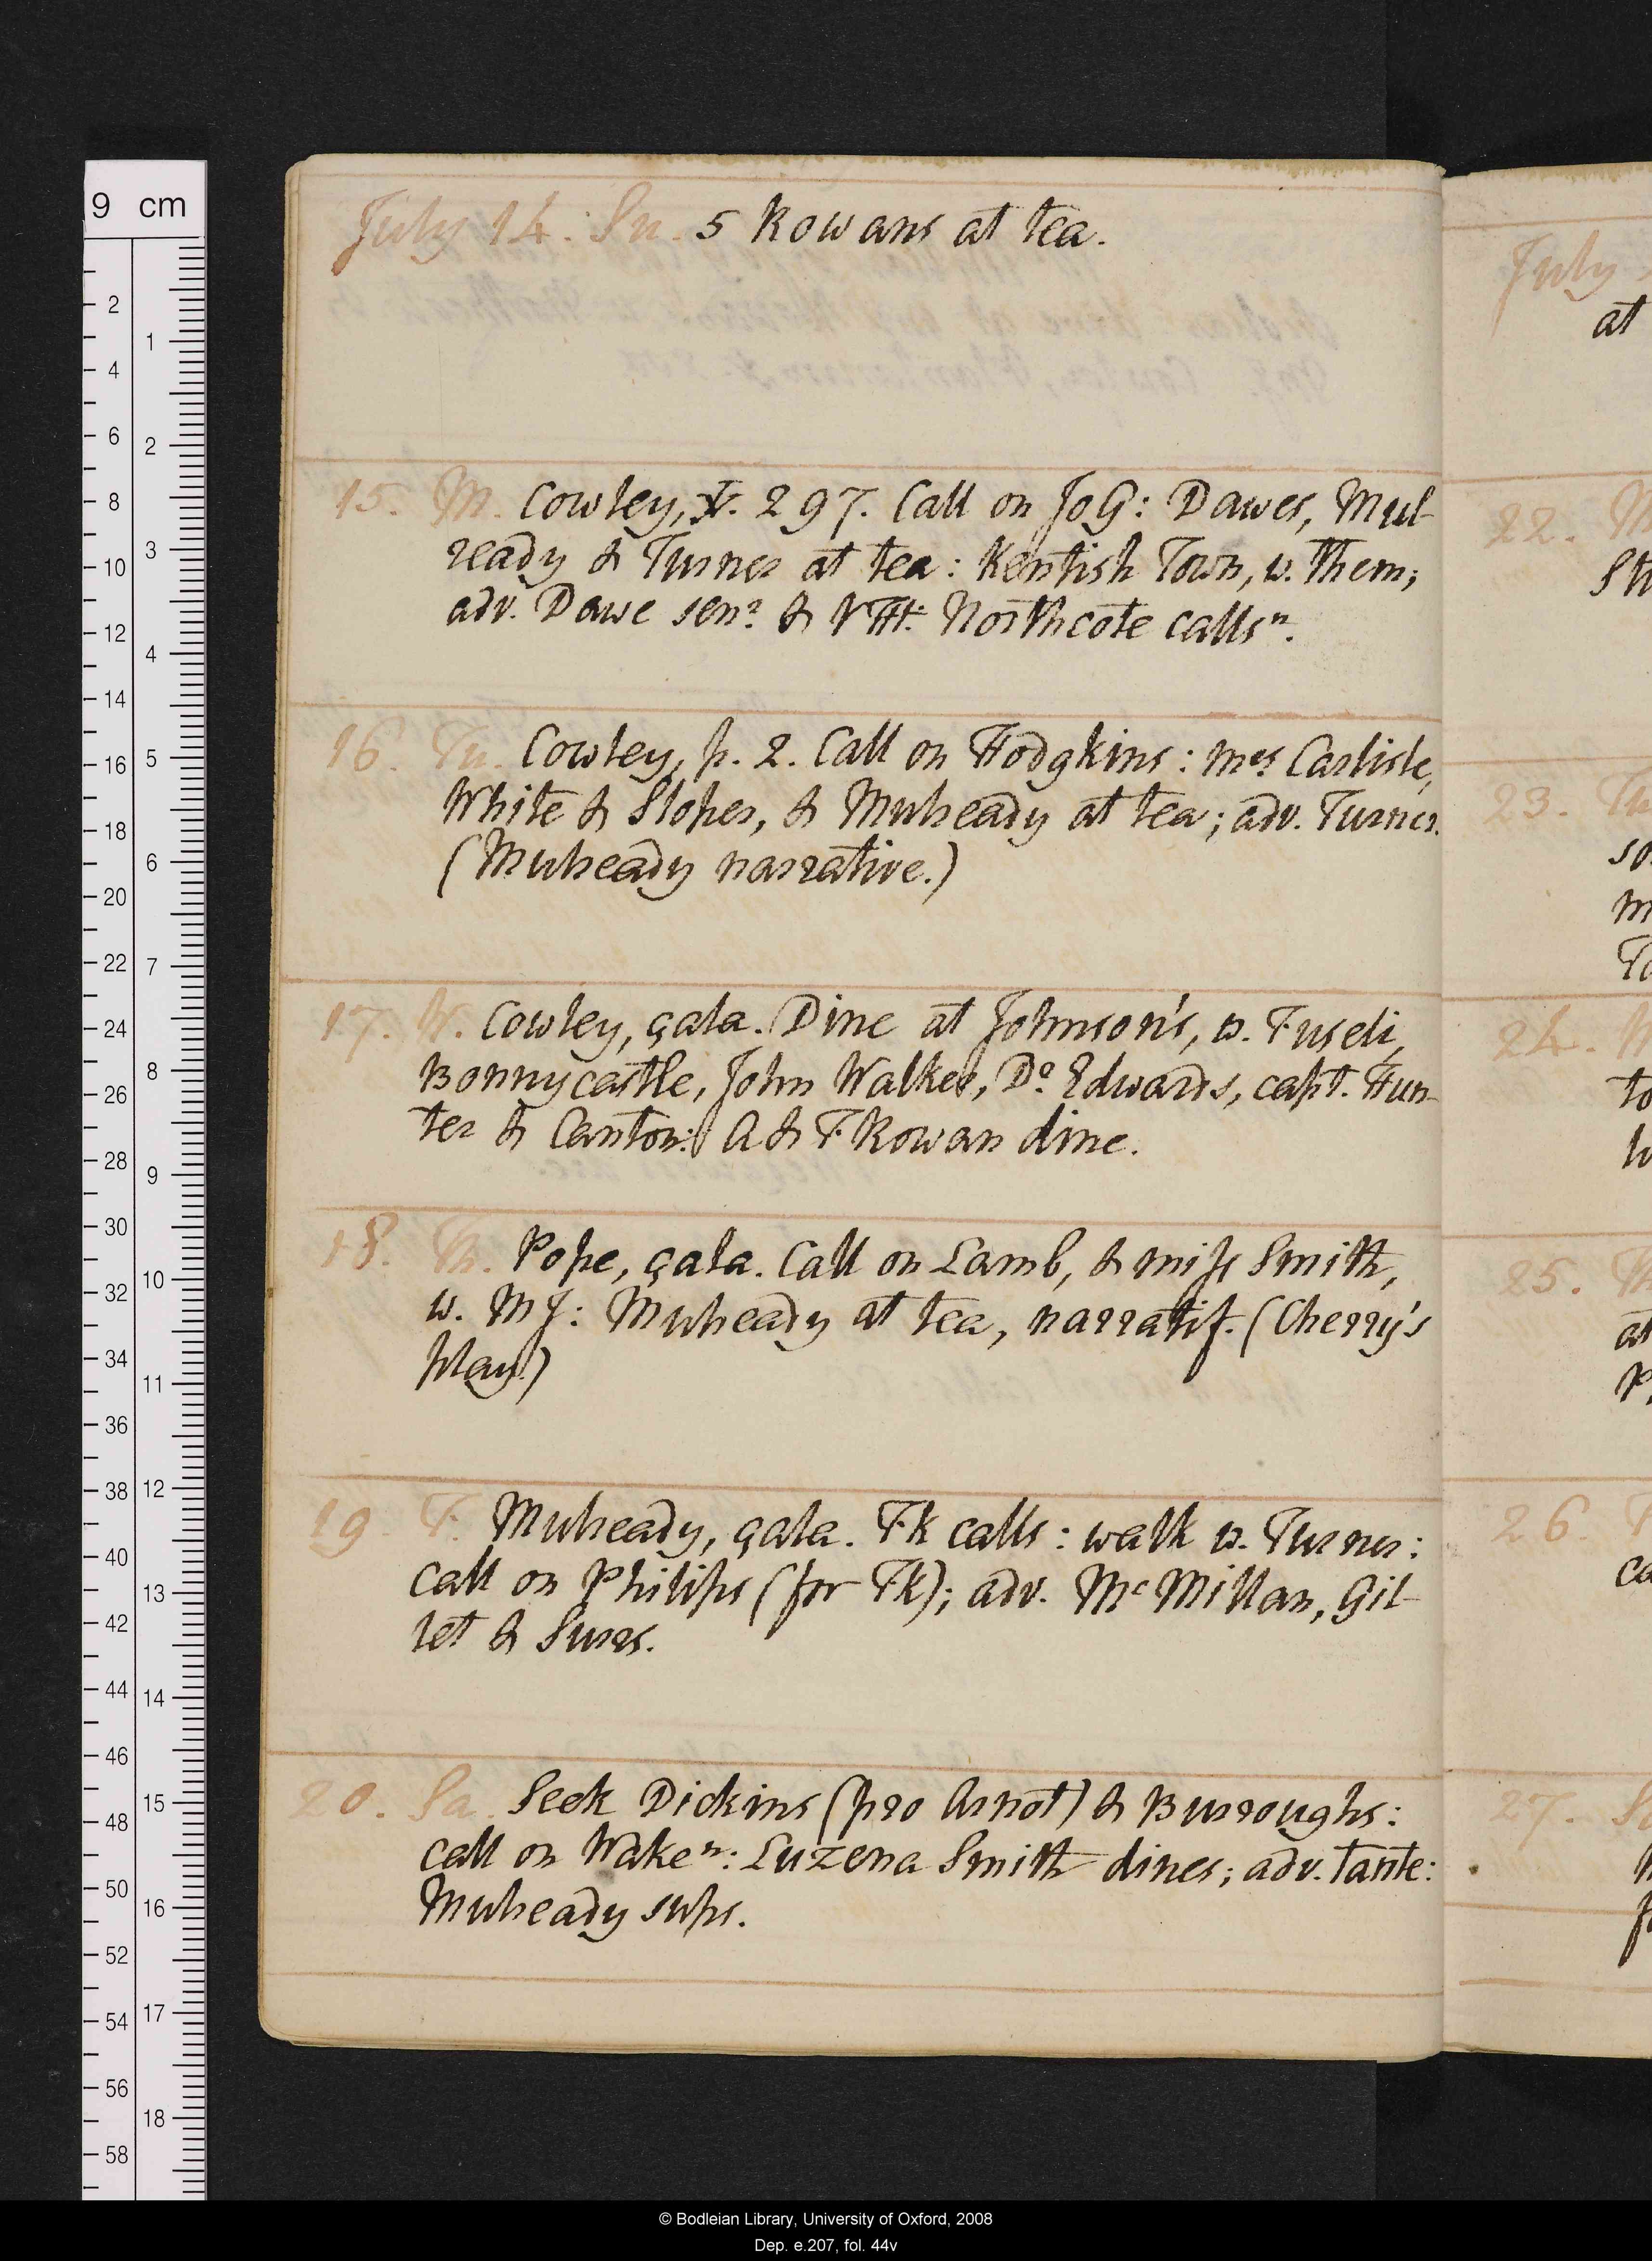 July 14. Su. 5 Rowans at tea.
15. M. Cowley, X. 297. Call on JoG: Dawes, Mul-
ready & Turner at tea: Kentish Town, w. them;
adv. Dawe senr. & VH: Northcote callsn.
16. Tu. Cowley, p. 2. Call on Hodgkins: mrs Carlisle,
White & Sloper, & Mulready at tea; adv. Turner.
(Mulready narrative.)
17. W. Cowley, çala. Dine at Johnson's, w. Fuseli,
Bonnycastle, John Walker, Do Edwards, capt. Hun-
ter & Canton: A & F. Rowan dine.
18. Th. Pope, çala. Call on Lamb, & miss Smith,
w. MJ: Mulready at tea, narratif. (Cherry's
play.)
19. F. Mulready, çala. FK calls: walk w. Turner:
call on Philips (for FK); adv. McMillan, Gil-
let & Surrs.
20. Sa. Seek Dickins (pro Arnot) & Burroughs:
call on Waken: Luzena Smith dines; adv. tante:
Mulready sups.
July
at
22. M
23. Tu
so
m
24. W
to
25.
at
P
26. F
ca
27.
9 cm
2
4
6
8
10
12
14
16
18
20
22
24
26
28
30
32
34
36
38
40
42
44
46
48
50
52
54
56
58
1
2
3
4
5
6
7
8
9
10
11
12
13
14
15
16
17
18
© Bodleian Library, University of Oxford, 2008
Dep. e.207, fol. 44v